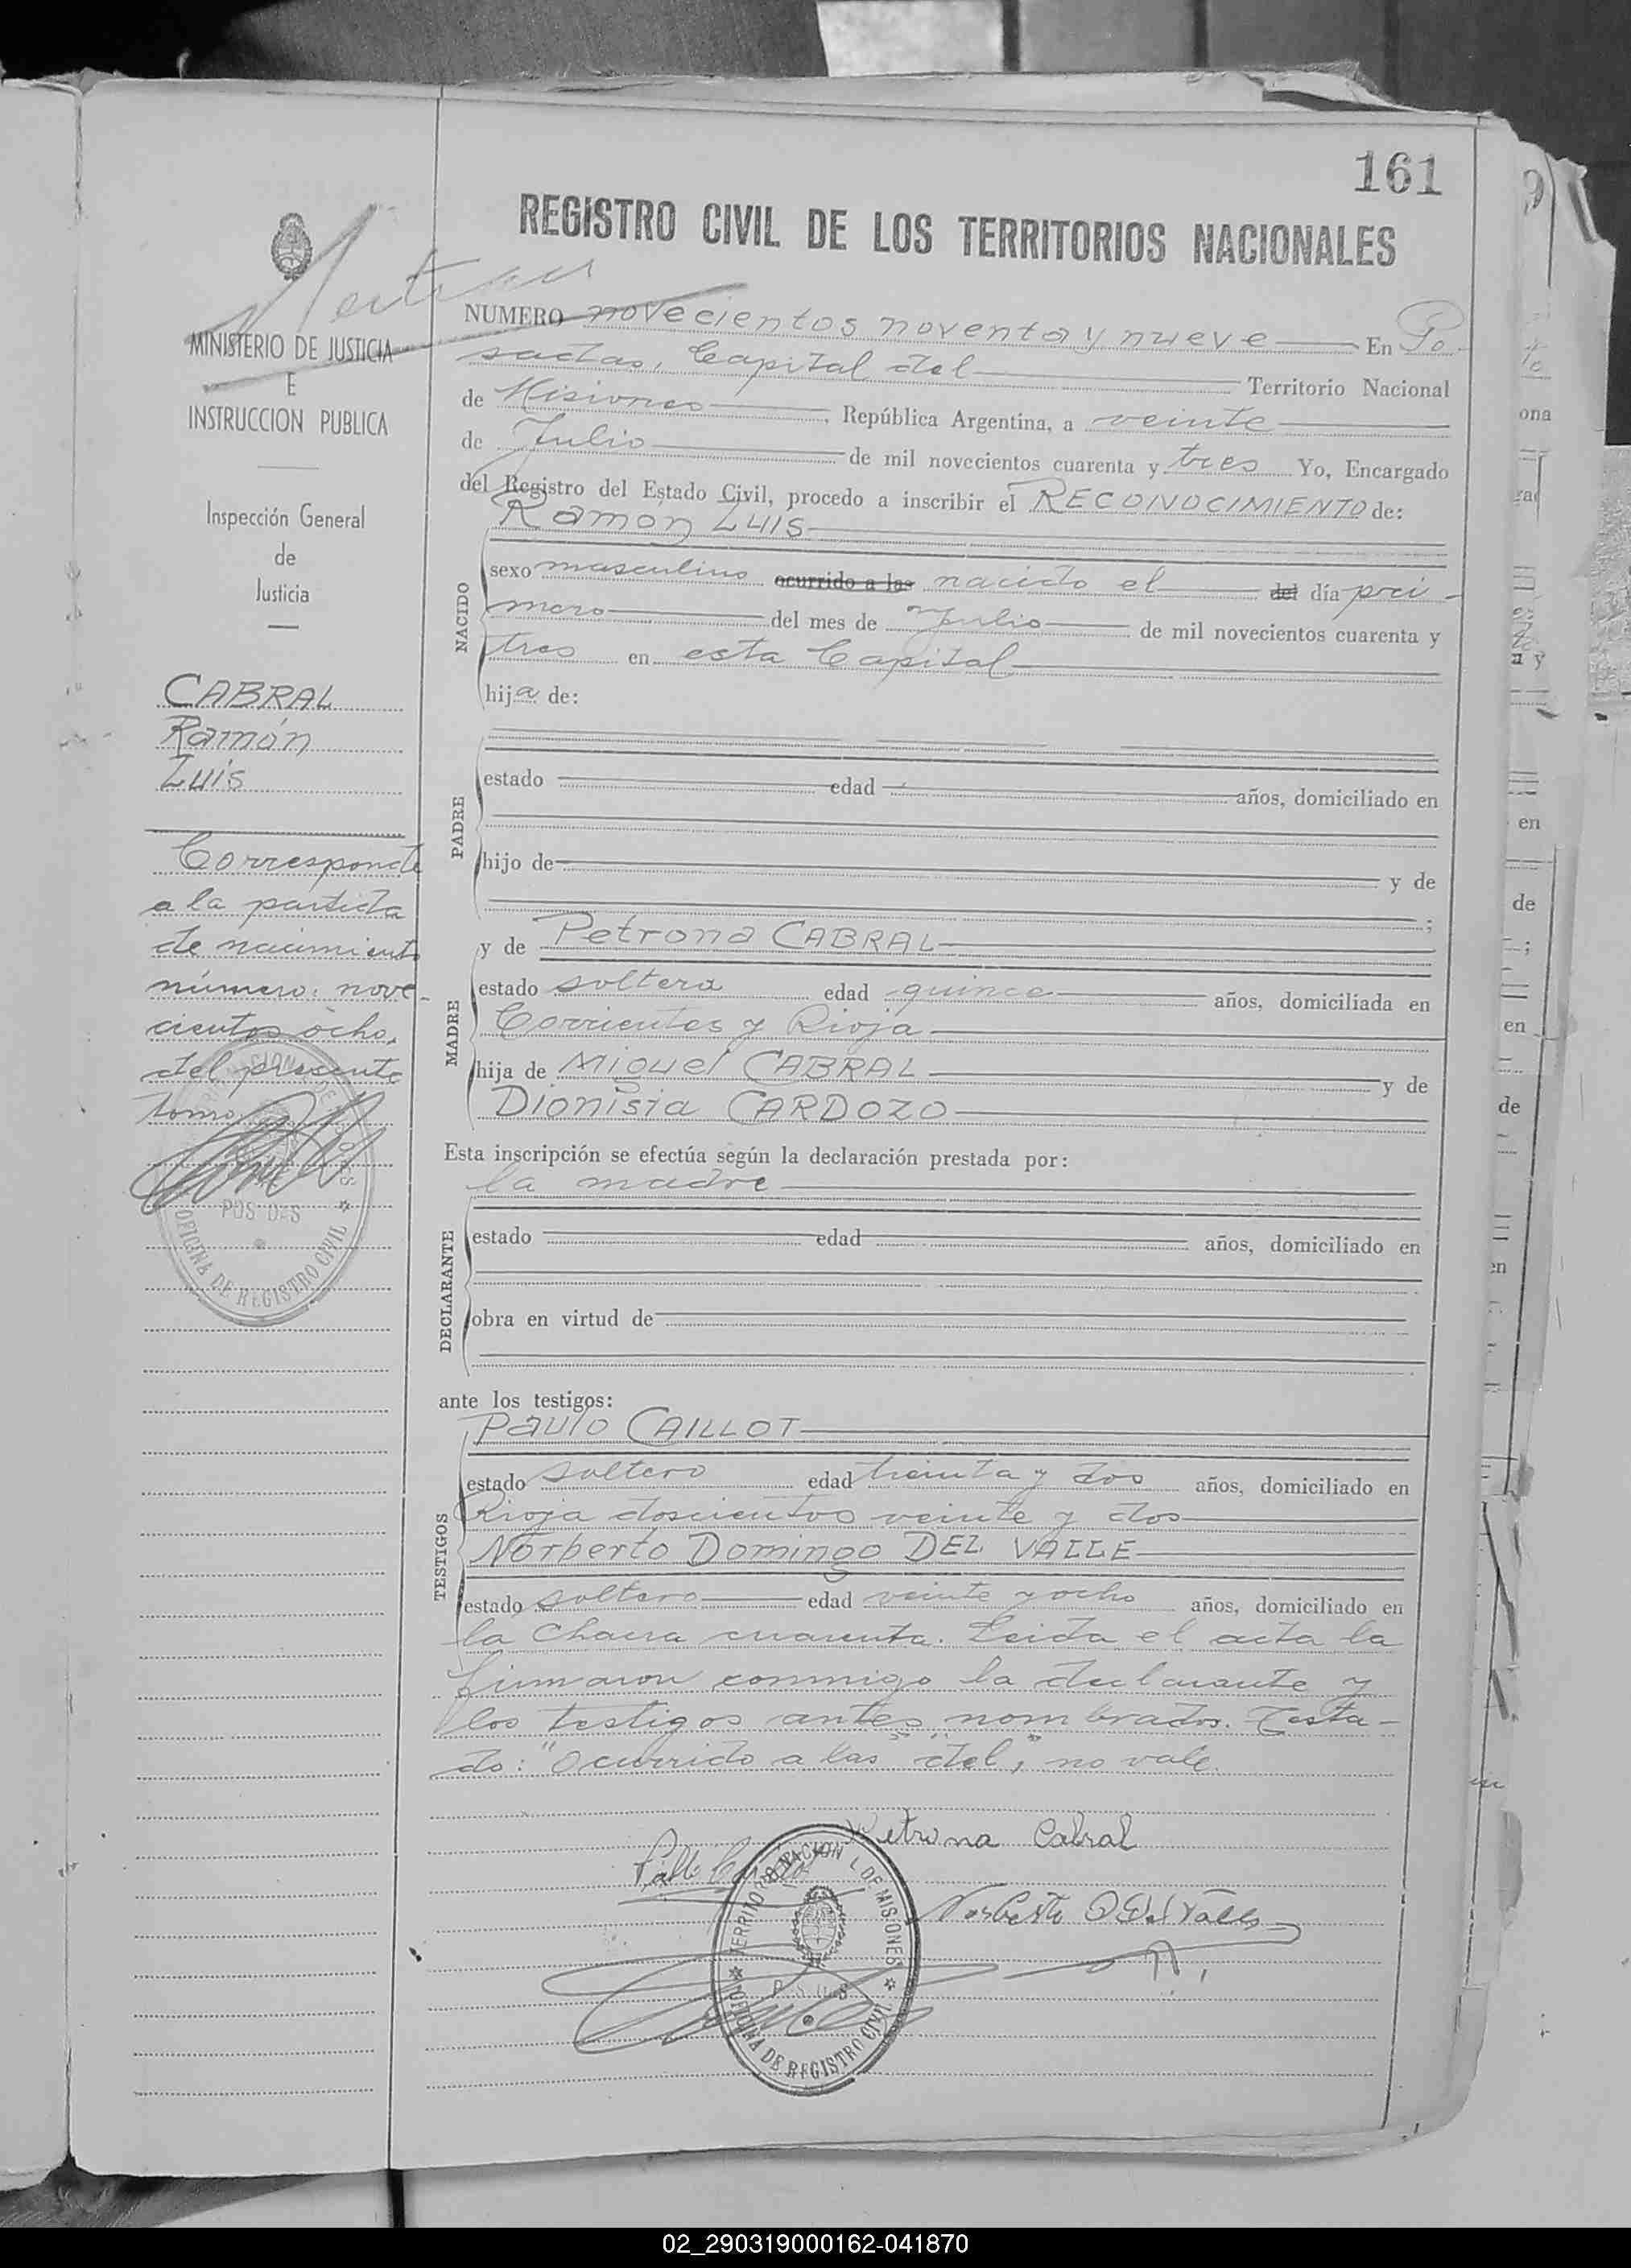 161
REGISTRO CIVIL DE LOS TERRITORIOS NACIONALES
MINISTERIO DE JUSTICIA
E
INSTRUCCION PUBLICA
Inspección General
de
Justicia
CABRAL
Ramón
Luis
Corresponde
a la partida
de nacimiento
número: nove-
cientos ocho,
del presente
tomo
POSADAS
OFICINA DE REGISTRO CIVIL
NUMERO novecientos noventa y nueve En Po
sadas, Capital del Territorio Nacional
de Misiones, República Argentina, a veinte
de Julio de mil novecientos cuarenta y tres Yo, Encargado
del Registro del Estado Civil, procedo a inscribir el RECONOCIMIENTO de:
Ramón Luis
NACIDO
sexo masculino ocurrido a las nacido el del día pri-
mero del mes de Julio de mil novecientos cuarenta y
tres en esta Capital
hija de:
PADRE
estado edad años, domiciliado en
hijo de y de
;
MADRE
y de Petrona CABRAL
estado soltera edad quince años, domiciliada en
Corrientes y Rioja
hija de Miguel CABRAL y de
Dionisia CARDOZO
Esta inscripción se efectúa según la declaración prestada por:
la madre
DECLARANTE
estado edad años, domiciliado en
obra en virtud de
ante los testigos:
TESTIGOS
Paulo CAILLOT
estado soltero edad treinta y dos años, domiciliado en
Rioja doscientos veinte y dos
Norberto Domingo DEL VALLE
estado soltero edad veinte y ocho años, domiciliado en
la Chacra cuarenta. Leida el acta la
firmaron conmigo la declarante y
los testigos antes nombrados. Testa-
do: "ocurrido a las" "del", no vale.
Petrona Cabral
Norberto D Del Valle
TERRITORIO NACIONAL DE MISIONES
POSADAS
OFICINA DE REGISTRO CIVIL
02_290319000162-041870